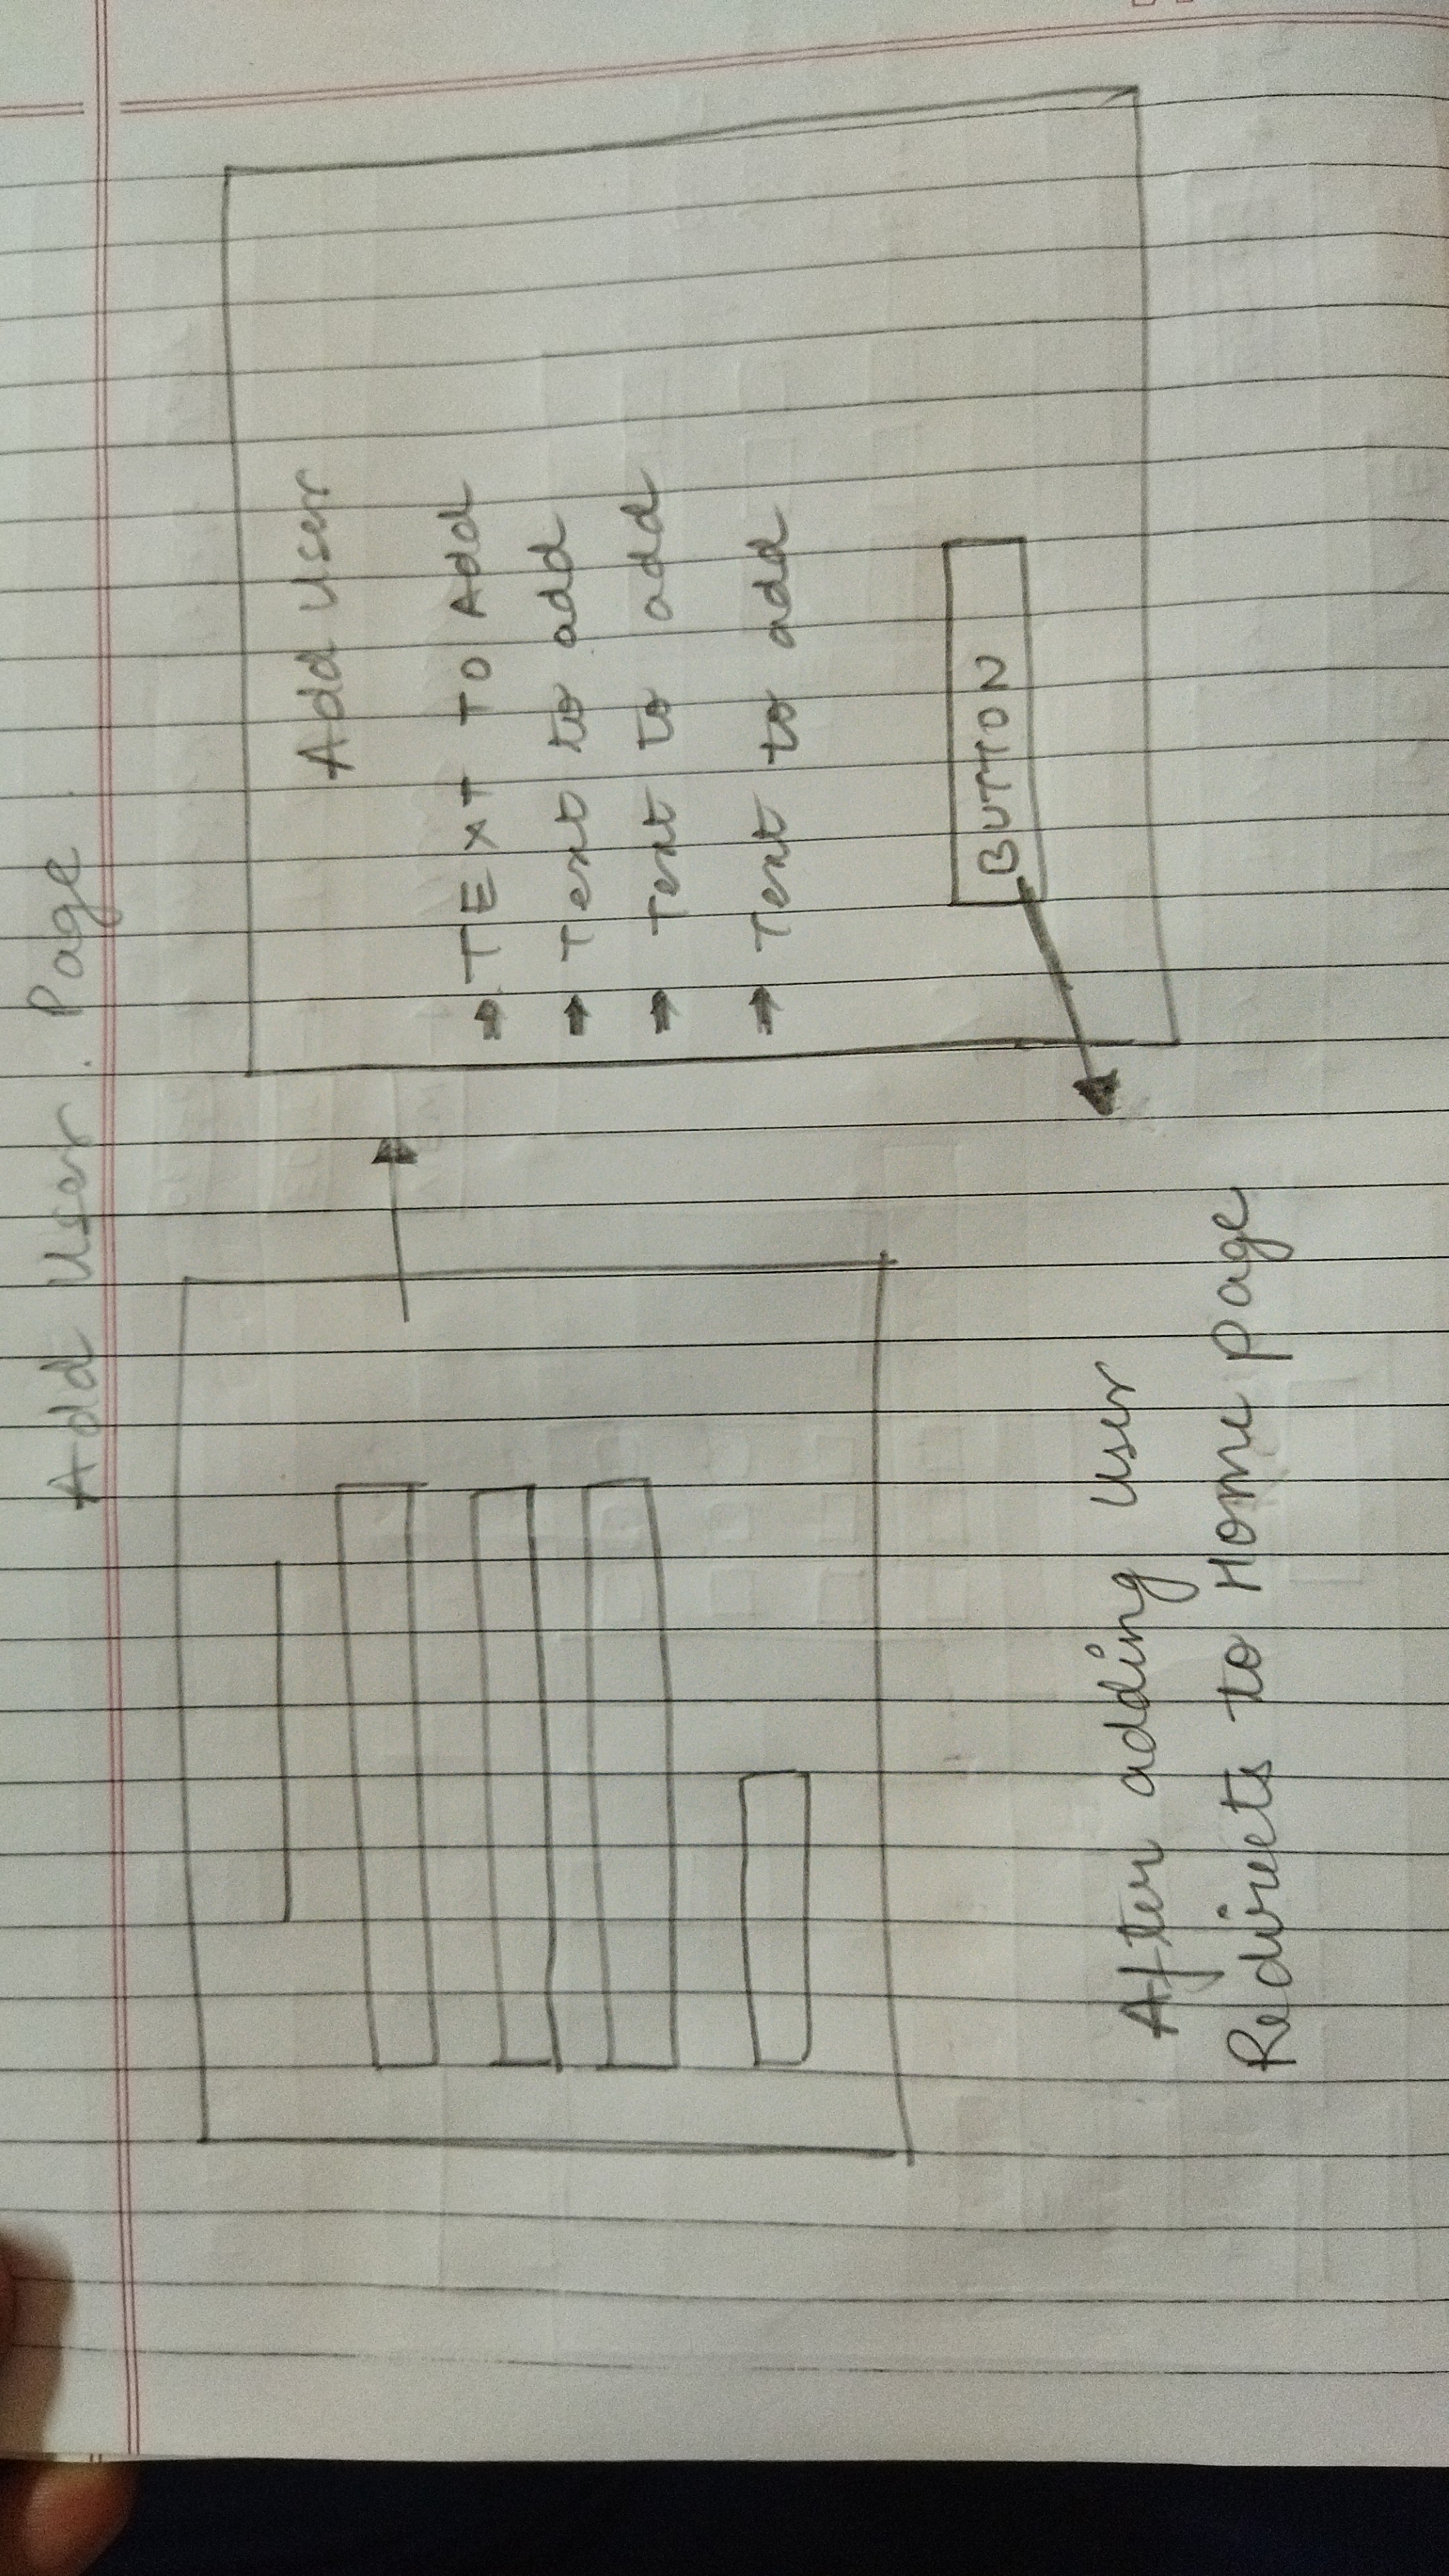 Add User. Page.
Add User
TEXT TO Add
Text to add
Text to add
Text to add
BUTTON
After adding User
Redirects to Home page